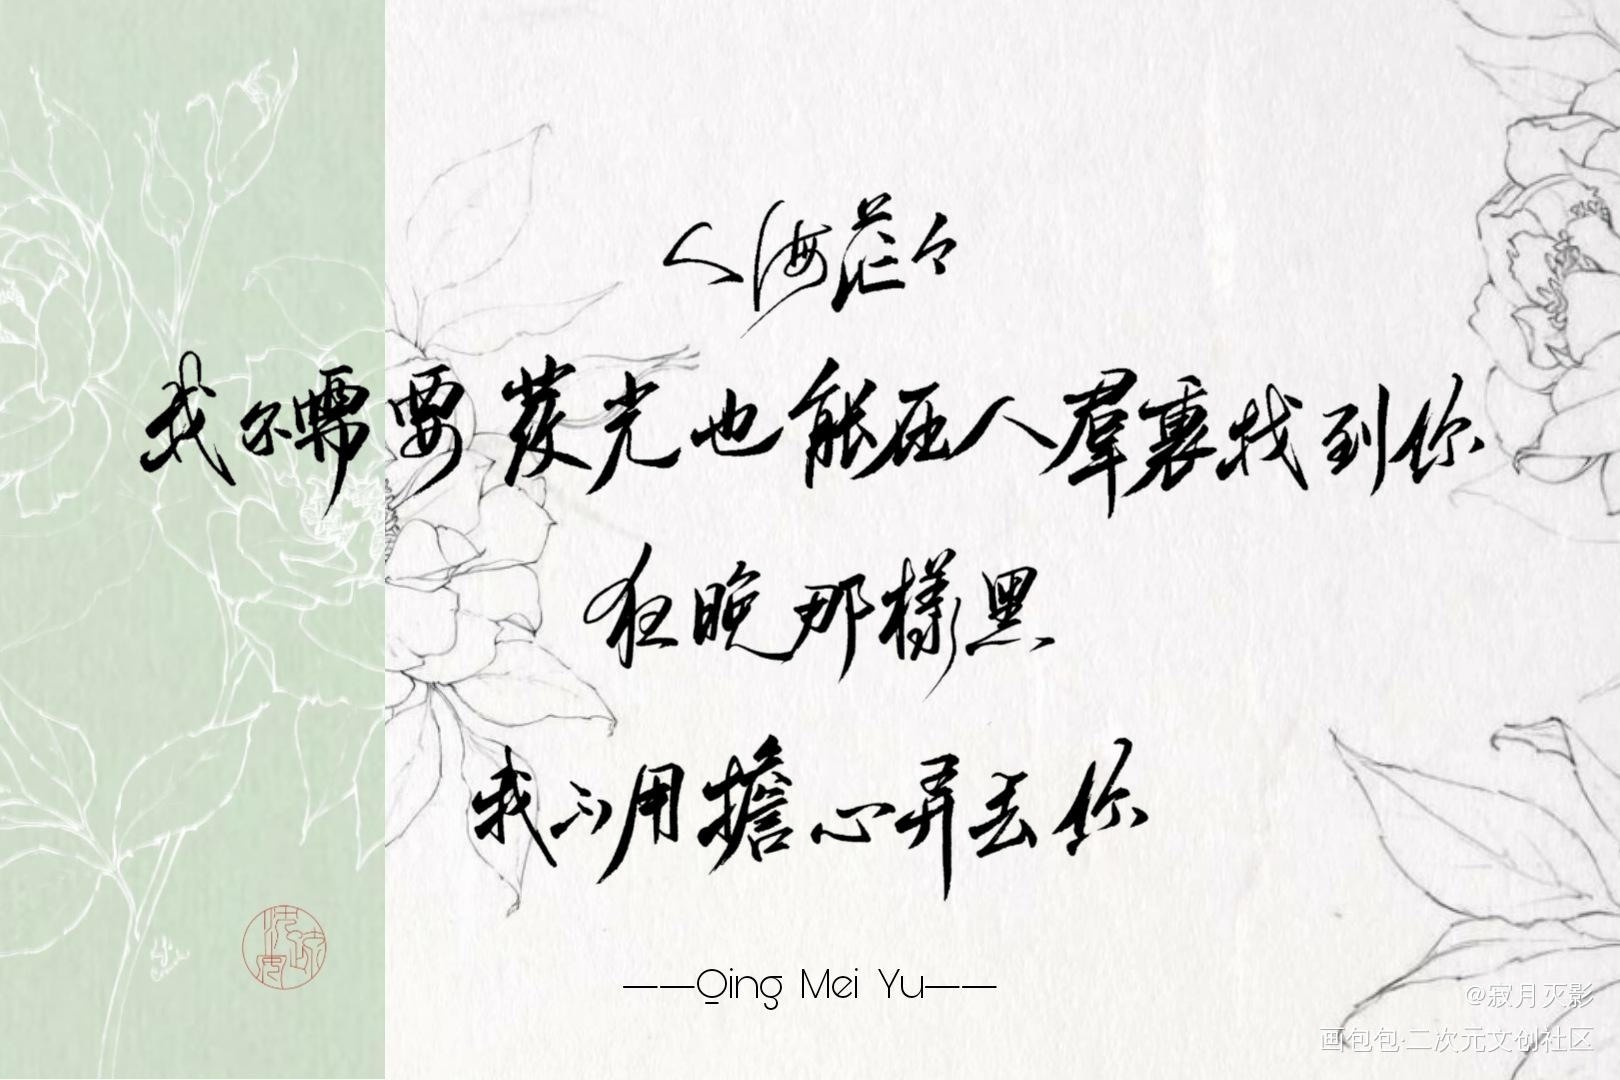 人海茫々
我不需要发光也能在人羣裏找到你
夜晚那樣黑
我不用擔心弄丢你
——Qing Mei Yu——
@寂月灭影
画包包·二次元文创社区